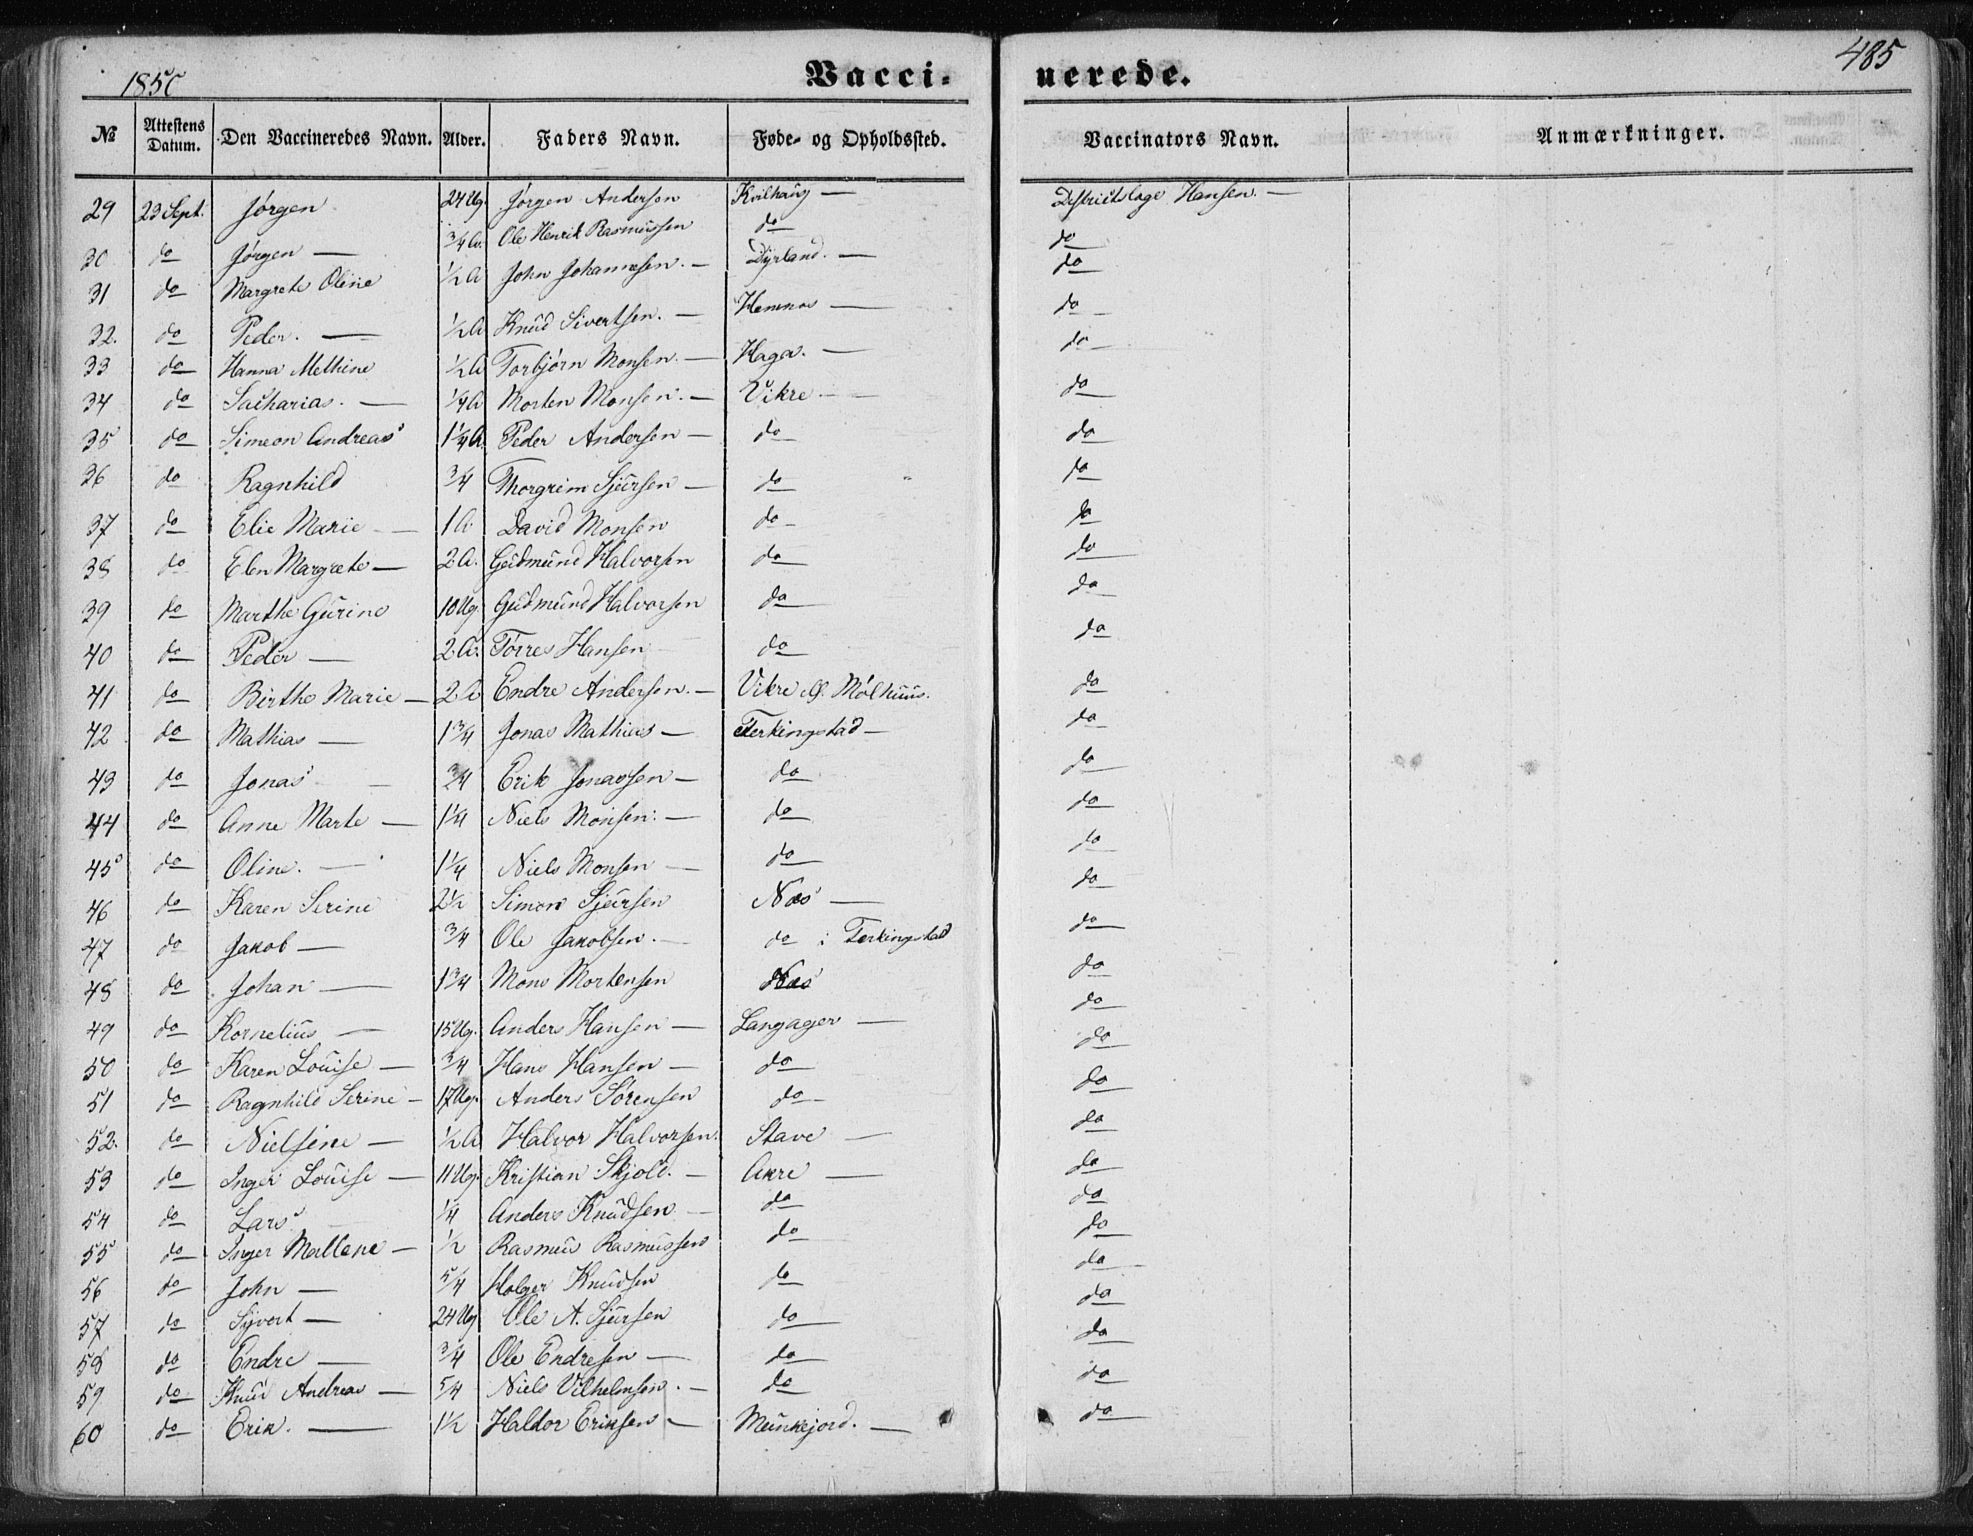 1850 Vacci- nerede. 485
№ Attestens Datum. Den Vaccineredes Navn. Alder. Faders Navn. Føde- og Opholdssted. Vaccinators Navn. Anmærkninger.
29 23 Sept. Jørgen 24 Ug. Jørgen Andersen Kvilhaug — Districtslæge Hansen. —
30 do Jørgen — 3/4 A. Ole Henrik Rasmussen do do
31 do Margrete Oline 1/2 A John Johannesen. — Dyrland. — do
32. do Peder. — 1/2 A Knud Sivertsen. — Hemnes — do
33 do Hanna Methine 1/2 A Torbjørn Monsen. — Haga. — do
34 do Sacharias. — 1/4 A Morten Monsen. — Vikre — do
35 do Simeon Andreas 1 1/4 A. Peder Andersen — do do
36 do Ragnhild 3/4 Thorgrim Sjursen — do do
37 do Elie Marie — 1 A. David Monsen do do
38 do Elen Margrete — 2 A. Gudmund Halvorsen do do
39 do Marthe Gurine 10 Ug. Gudmund Halvorsen do do
40 do Peder — 2 A. Torres Hansen do do
41 do Birthe Marie — 2 A Endre Andersen. — Vikre Mølhuus. do
42 do Mathias — 1 3/4 Jonas Mathias — Ferkingstad — do
43 do Jonas — 3/4 Erik Jonassen — do do
44 do Anne Marte — 1 1/4 Niels Monsen. — do do
45 do Oline. — 1 1/4 Niels Monsen — do do
46 do Karen Serine 2 1/2 Simon Sjursen Næs — do
47 do Jakob — 3/4 Ole Jakobsen. — do i Ferkingstad do
48 do Johan — 1 3/4 Mons Mortensen Næs do
49 do Kornelius — 15 Ug. Anders Hansen — Langager — do
50 do Karen Louise — 3/4 Hans Hansen — do do
51 do Ragnhild Serine — 17 Ug. Anders Sørensen do — do
52. do Nielsine — 1/2 A Halvor Halvorsen. Stave — do
53 do Inger Louise — 11 Ug. Kristian Skjold. — Akre — do
54 do Lars 1/4 Anders Knudsen — do do
55 do Inger Mallene — 1/2 Rasmus Rasmussen do do
56 do John — 5/4 Holger Knudsen do do
57 do Syvert — 24 Ug Ole A. Sjursen do do
58 do Endre — 3/4 Ole Endresen — do do
59 do Knud Andreas — 5/4 Niels Vilhelmsen. — do do
60 do Erik. — 1 1/2 Haldor Eriksen — Munkejord. — do